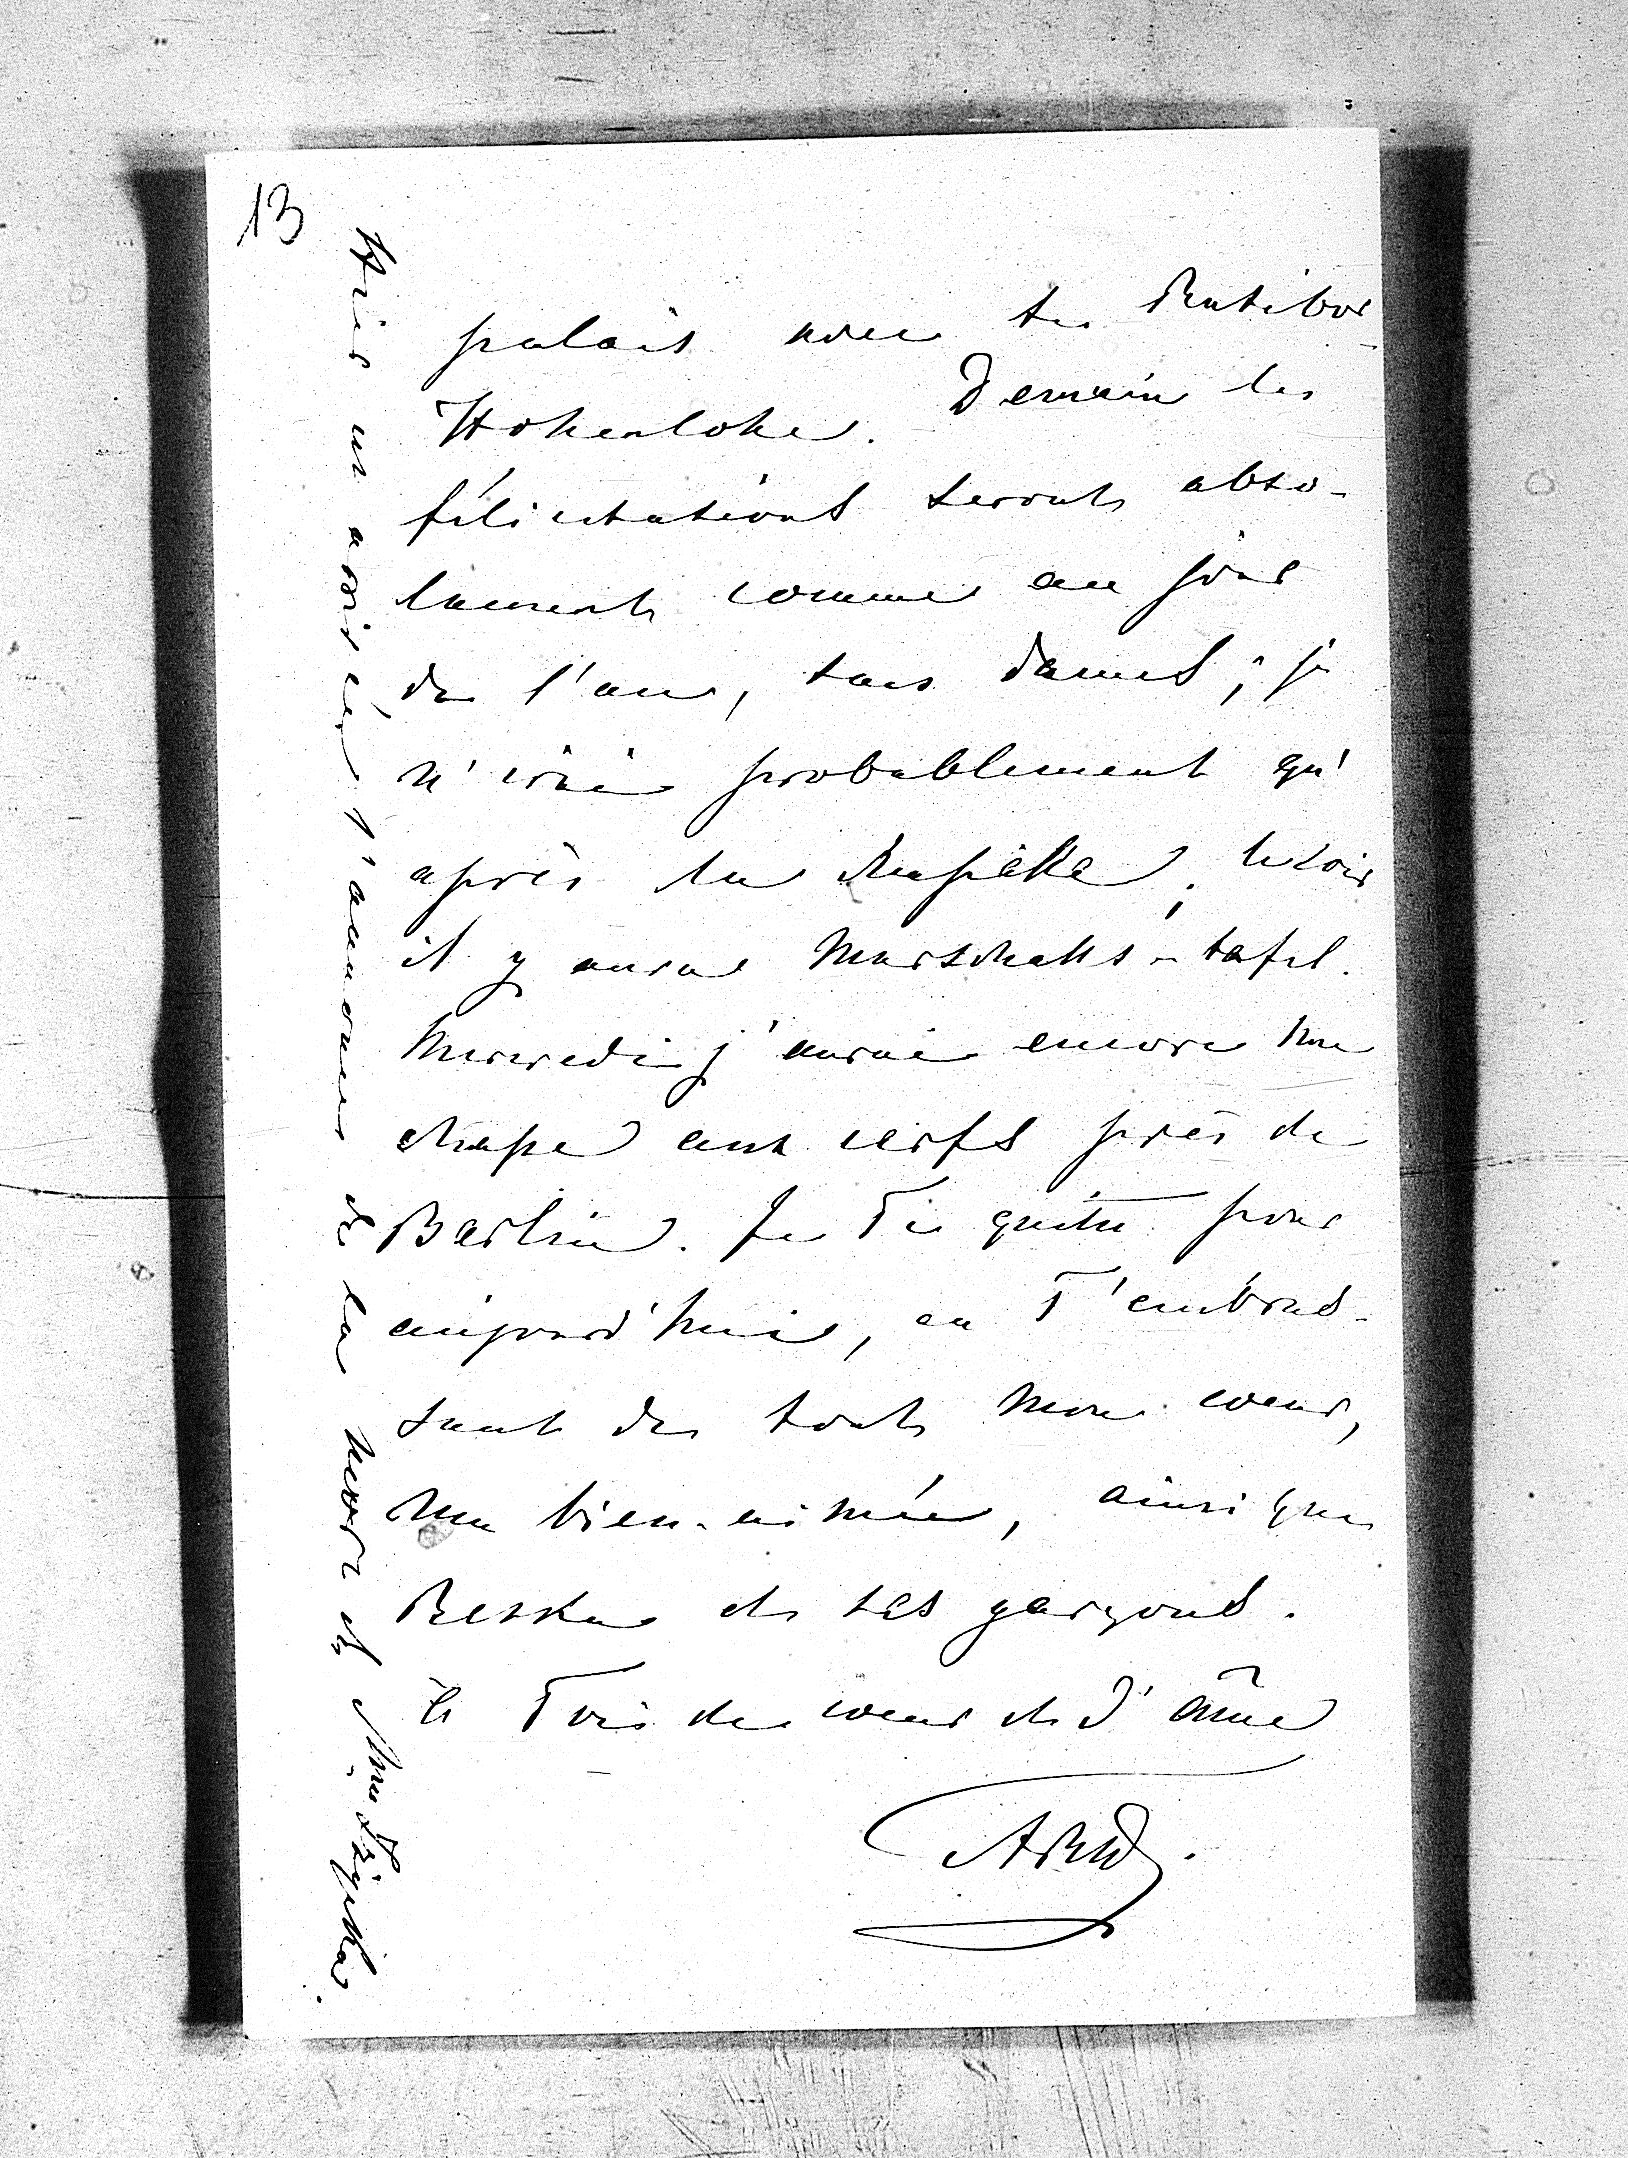 13
palais avec les Ratibor-
Hohenlohe. Demain les
félicitations seront abso-
lument comme au jour
de l'an, sans dames; je
n'irai probablement qu'
après la chapelle; le soir
il y aura Marschalls-tafel.
Mercredi j'aurai encore une
chasse aux cerfs près de
Berlin. Je Te quitte pour
aujourd'hui, en T'embras-
sant de tout mon coeur,
ma bien-aimée, ainsi que
Biska et les garçons.
à Toi de coeur et d'âme
Hier est arrivée l'annonce de la mort de Mme